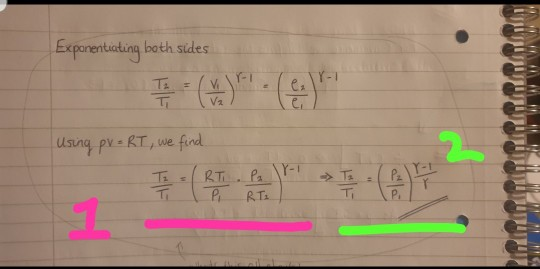 Exponentiating both sides
T₂/T₁ = (V₁/V₂)^γ-1 = (ρ₂/ρ₁)^γ-1
Using pv = RT, we find
2
T₂/T₁ = (RT₁/P₁ · P₂/RT₂)^γ-1 ⇒ T₂/T₁ = (P₂/P₁)^γ-1/γ
1